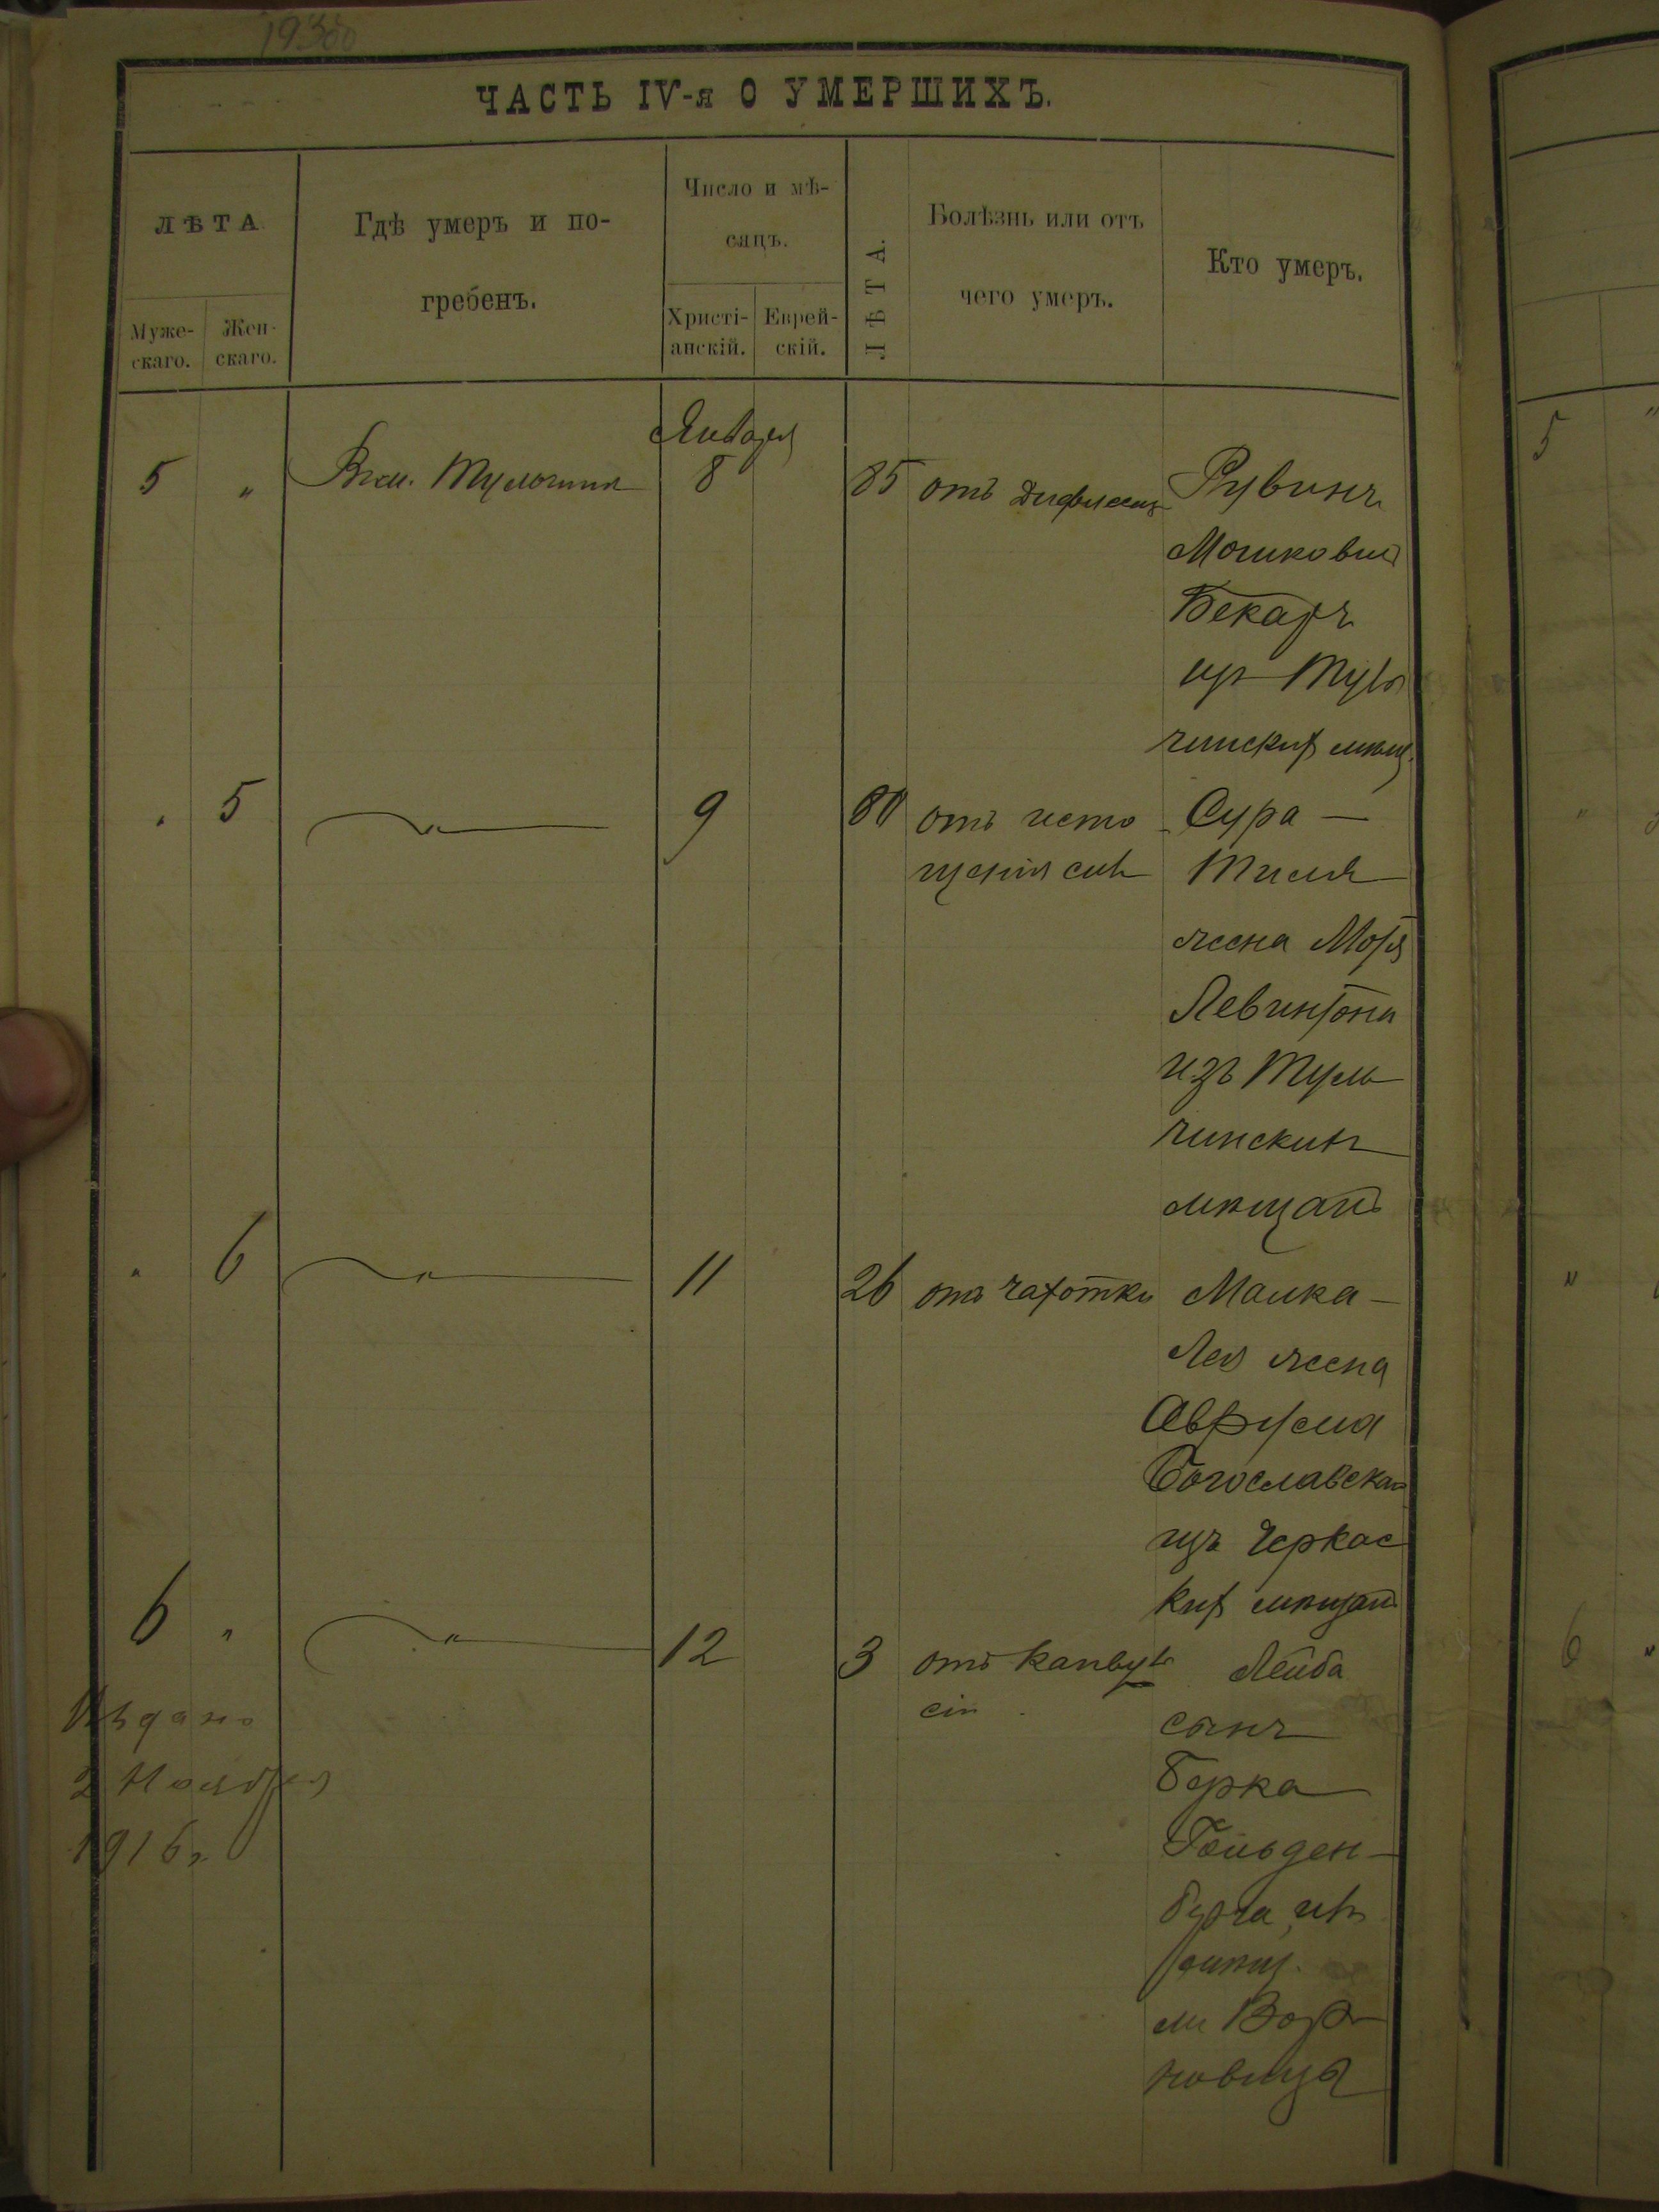 ЧАСТЬ IV-я О УМЕРШИХЪ.
ЛѢТА
Муже-
скаго.
Жен-
скаго.
Гдѣ умеръ и по-
гребенъ.
Число и мѣ-
сяцъ.
Христі-
анскій.
Еврей-
скій.
ЛѢТА.
Болѣзнь или отъ
чего умеръ.
Кто умеръ.
Января
5 " Тульчинѣ 8 85 отъ Рувинъ
Мошковичъ
Бекаръ
изъ Туль
чинскихъ мѣщ.
" 5 " 9 80 отъ исто Сура —
щенія силъ
жена
Левинтона
изъ Туль
чинскихъ
мѣщанъ
" 6 " 11 26 отъ чахотки Малка —
Лея жена
Аврума
Богославская
изъ Черкас
кихъ мѣщанъ
6 " " 12 3 отъ канвуль
сіи
Лейба
сынъ
Берка
Гольден-
берга изъ
мѣщ.
м Воро
новица
2 Ноября
1916 г.
5 "
6 "